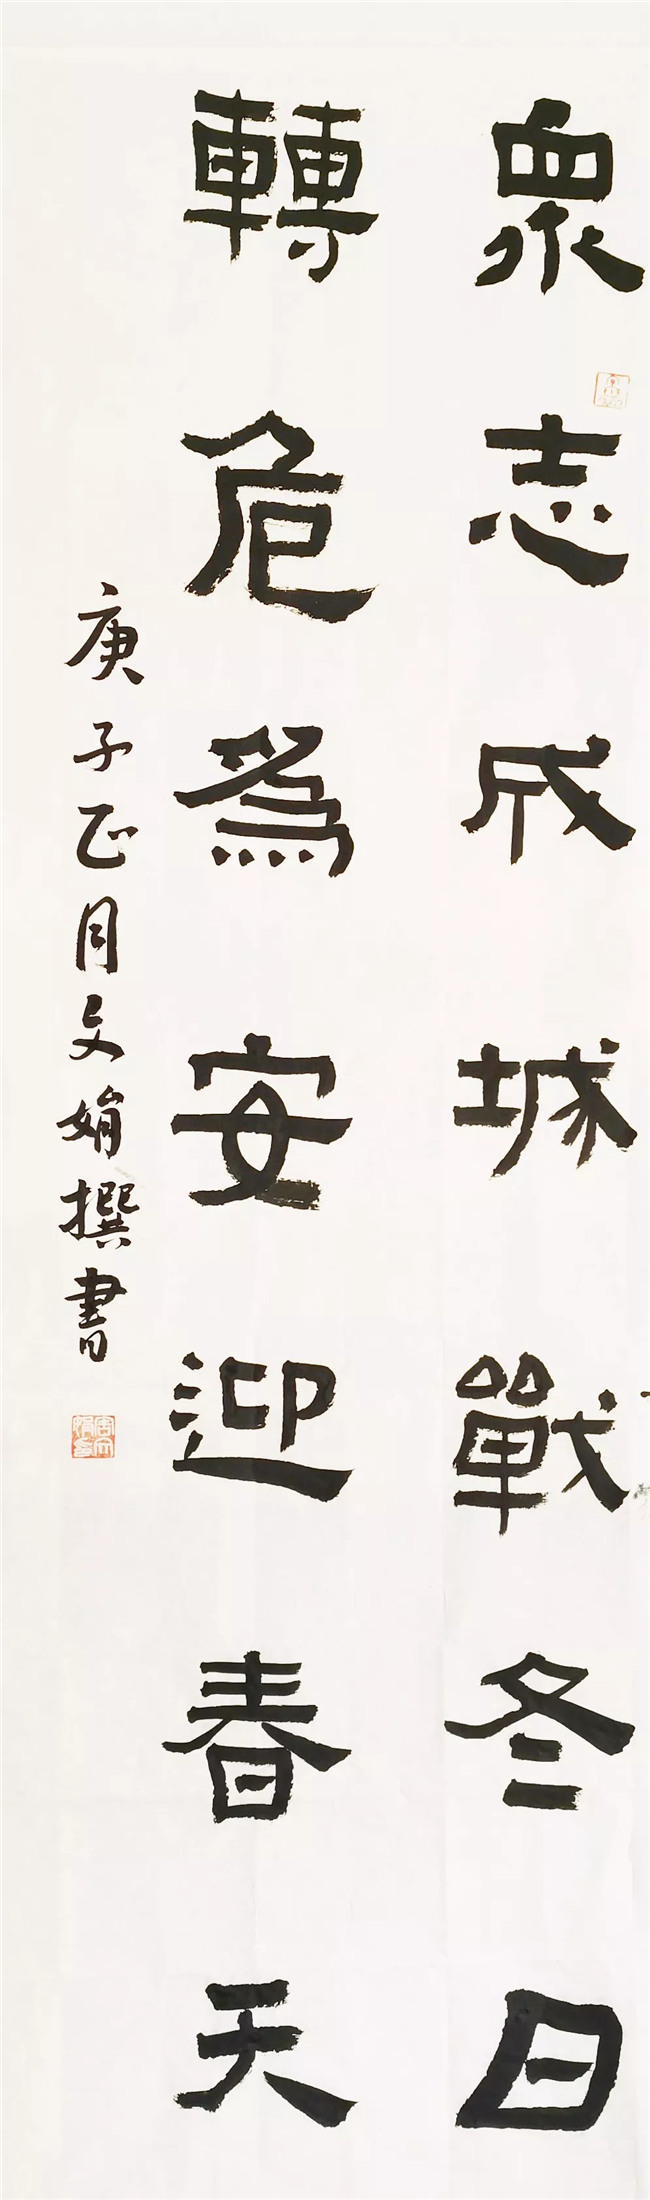 眾志成城戰冬日
轉危爲安迎春天
庚子正月文娟撰書